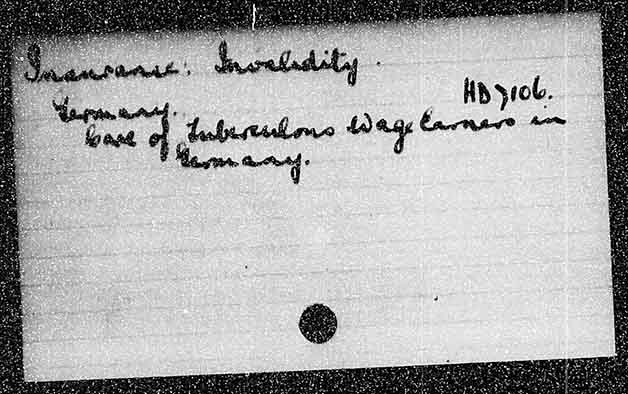 Insurance: Invalidity.
HD7106.
Germany.
Care of Tuberculous Wage Earners in
Germany.